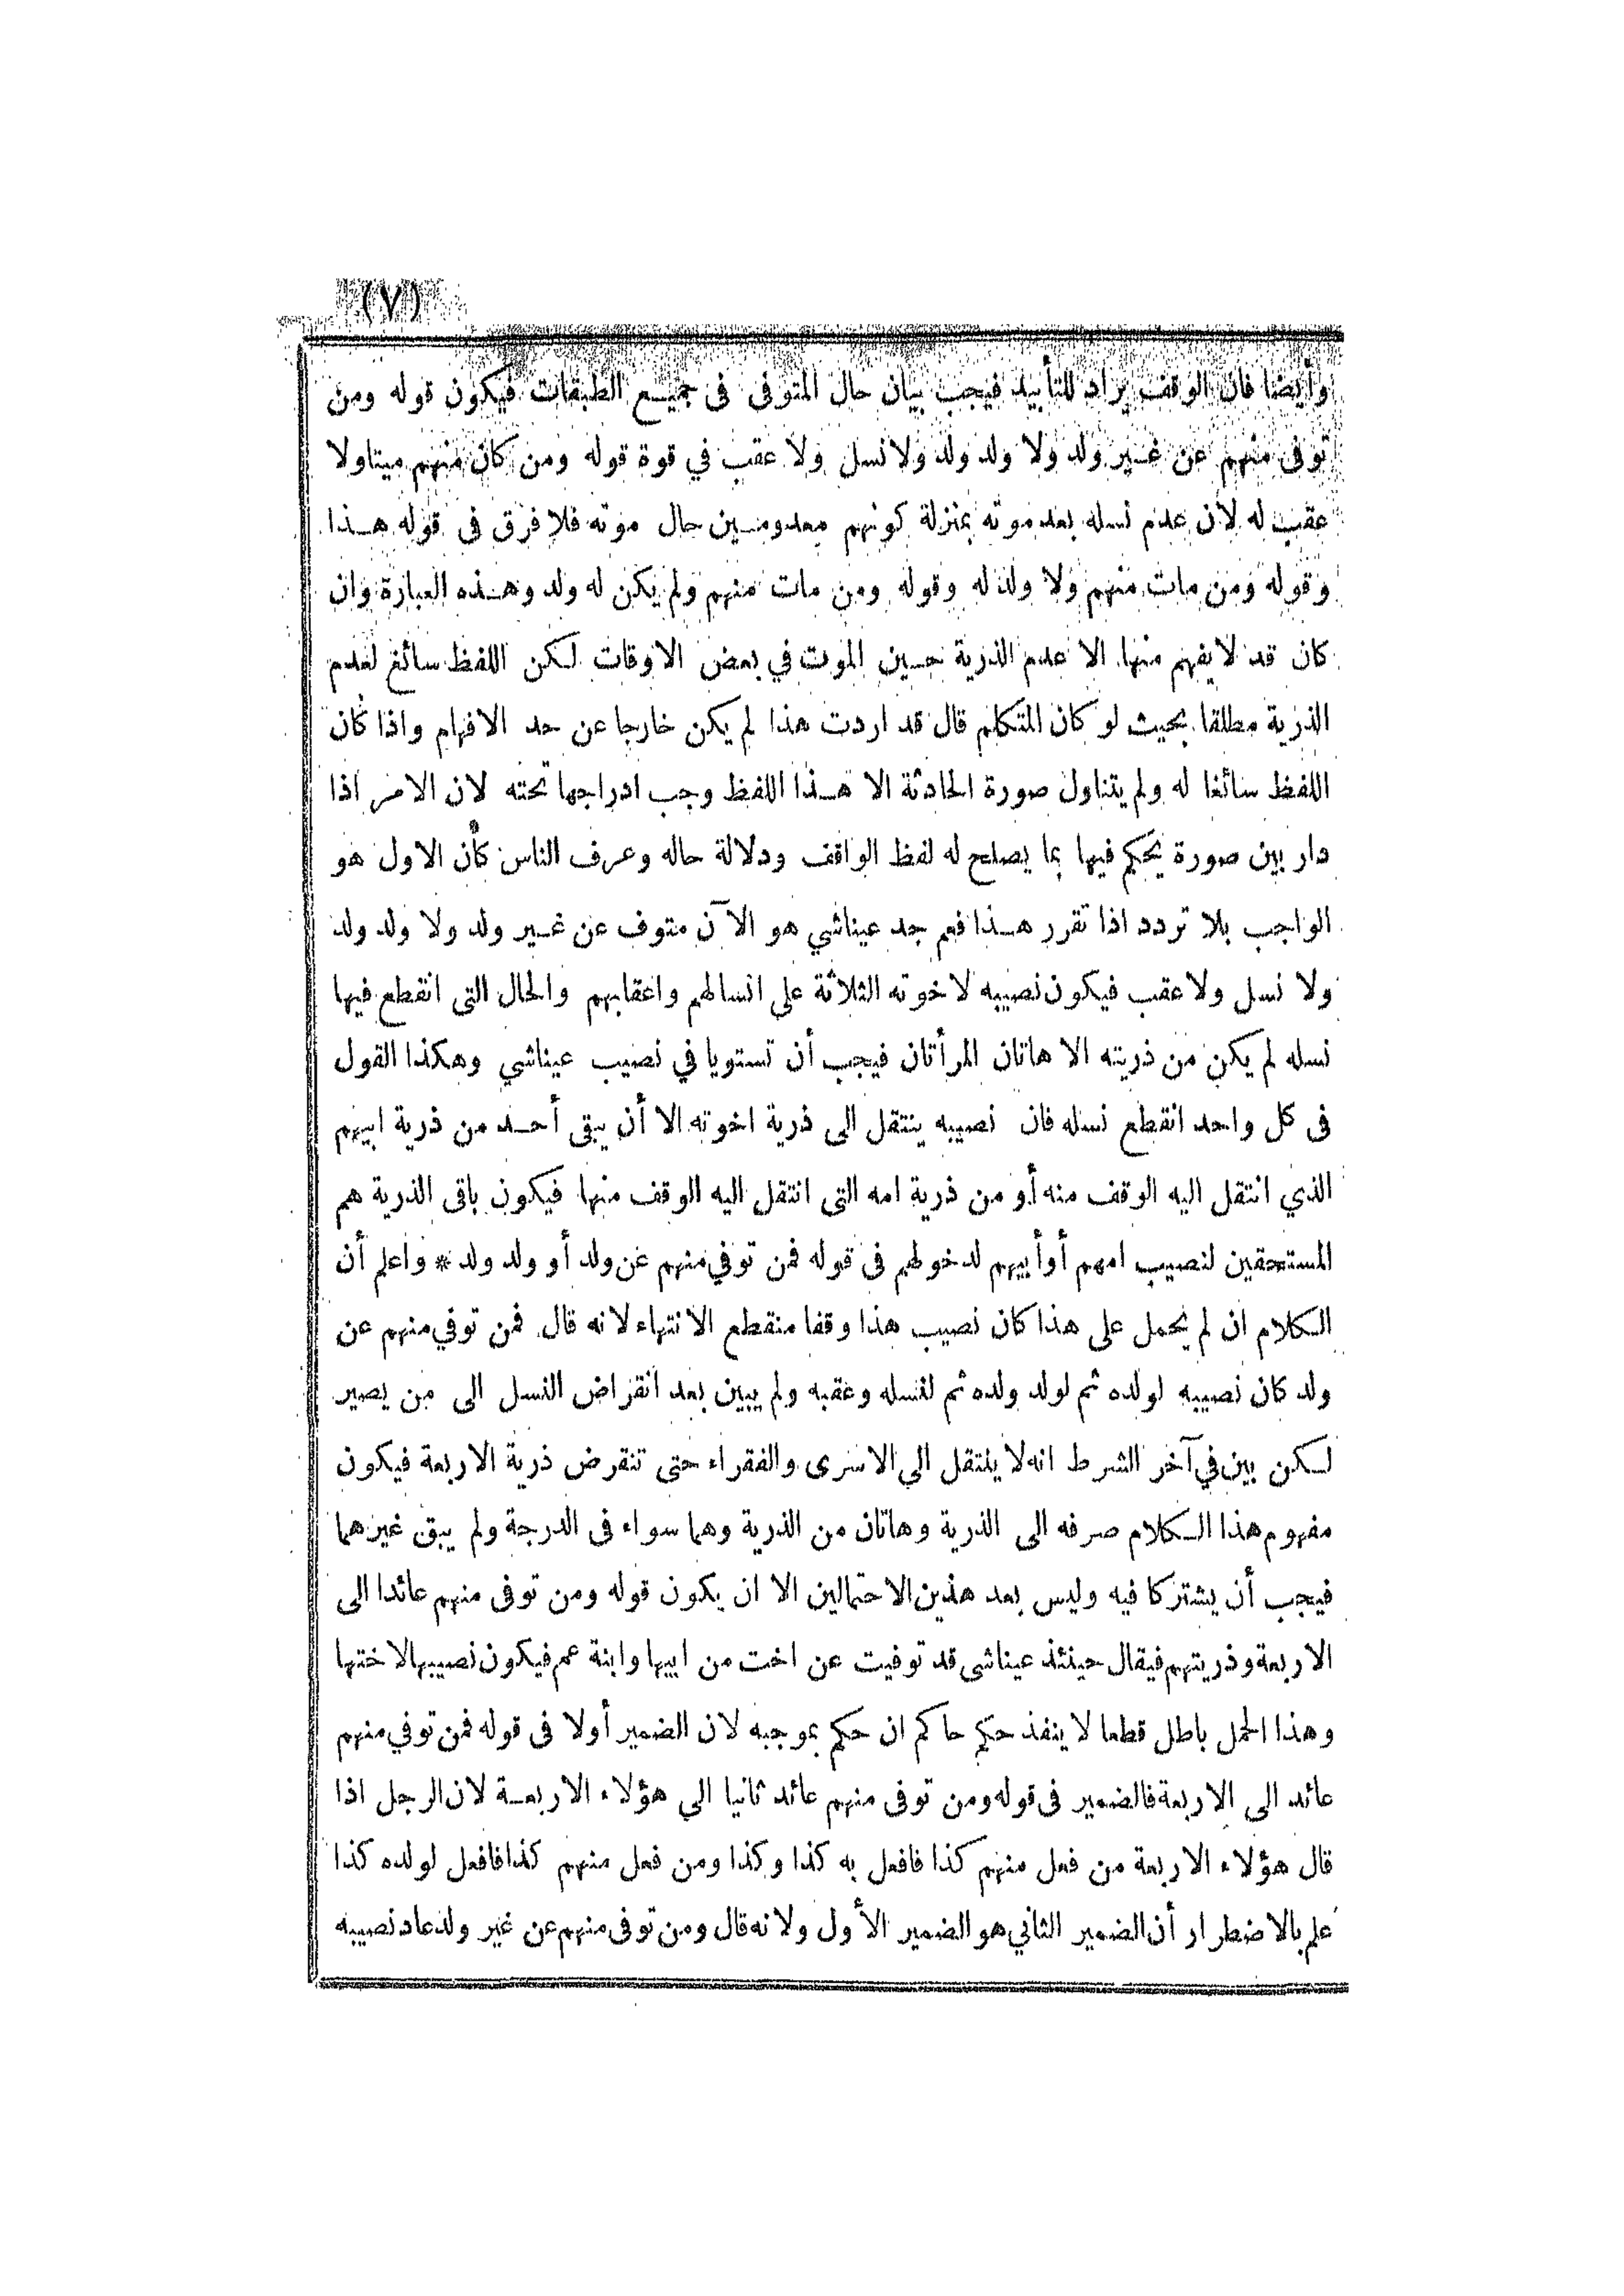 (٧)
وأيضا فان الوقف يراد للتأبيد فيجب بيان حال المتوفى فى جميع الطبقات فيكون قوله ومن
توفى منهم عن غير ولد ولا ولد ولد ولا نسل ولا عقب في قوة قوله ومن كان منهم ميتا ولا
عقب له لان عدم نسله بعد موته بمنزلة كونهم معدومين حال موته فلا فرق فى قوله هذا
وقوله ومن مات منهم ولا ولد له وقوله ومن مات منهم ولم يكن له ولد وهذه العبارة وان
كان قد لا يفهم منها الا عدم الذرية حين الموت في بعض الاوقات لكن اللفظ سائغ لعدم
الذرية مطلقا بحيث لو كان المتكلم قال قد اردت هذا لم يكن خارجا عن حد الافهام واذا كان
اللفظ سائغا له ولم يتناول صورة الحادثة الا هذا اللفظ وجب ادراجها تحته لان الامر اذا
دار بين صورة يحكم فيها بما يصلح له لفظ الواقف ودلالة حاله وعرف الناس كأن الاول هو
الواجب بلا تردد اذا تقرر هذا فعم جد عيناشي هو الآن متوف عن غير ولد ولا ولد ولد
ولا نسل ولا عقب فيكون نصيبه لاخوته الثلاثة على انسالهم واعقابهم والحال التى انقطع فيها
نسله لم يكن من ذريته الا هاتان المرأتان فيجب أن تستويا في نصيب عيناشي وهكذا القول
فى كل واحد انقطع نسله فان نصيبه ينتقل الى ذرية اخوته الا أن يبقى أحد من ذرية ابيهم
الذي انتقل اليه الوقف منه أو من ذرية امه التى انتقل اليه الوقف منها فيكون باقى الذرية هم
المستحقين لنصيب امهم أو أبيهم لدخولهم فى قوله فمن توفي منهم عن ولد أو ولد ولد * واعلم أن
الكلام ان لم يحمل على هذا كان نصيب هذا وقفا منقطع الانتهاء لانه قال فمن توفي منهم عن
ولد كان نصيبه لولده ثم لولد ولده ثم لنسله وعقبه ولم يبين بعد انقراض النسل الى من يصير
لكن بين في آخر الشرط انه لا ينتقل الى الاسرى والفقراء حتى تنقرض ذرية الاربعة فيكون
مفهوم هذا الكلام صرفه الى الذرية وهاتان من الذرية وهما سواء فى الدرجة ولم يبق غيرهما
فيجب أن يشتركا فيه وليس بعد هذين الاحتمالين الا ان يكون قوله ومن توفى منهم عائدا الى
الاربعة وذريتهم فيقال حينئذ عيناشى قد توفيت عن اخت من ابيها وابنة عم فيكون نصيبها لاختها
وهذا الحمل باطل قطعا لا ينفذ حكم حاكم ان حكم بموجبه لان الضمير أولا فى قوله فمن توفي منهم
عائد الى الاربعة فالضمير فى قوله ومن توفى منهم عائد ثانيا الي هؤلاء الاربعة لان الرجل اذا
قال هؤلاء الاربعة من فعل منهم كذا فافعل به كذا وكذا ومن فعل منهم كذا فافعل لولده كذا
علم بالاضطرار أن الضمير الثاني هو الضمير الأول ولانه قال ومن توفى منهم عن غير ولد عاد نصيبه